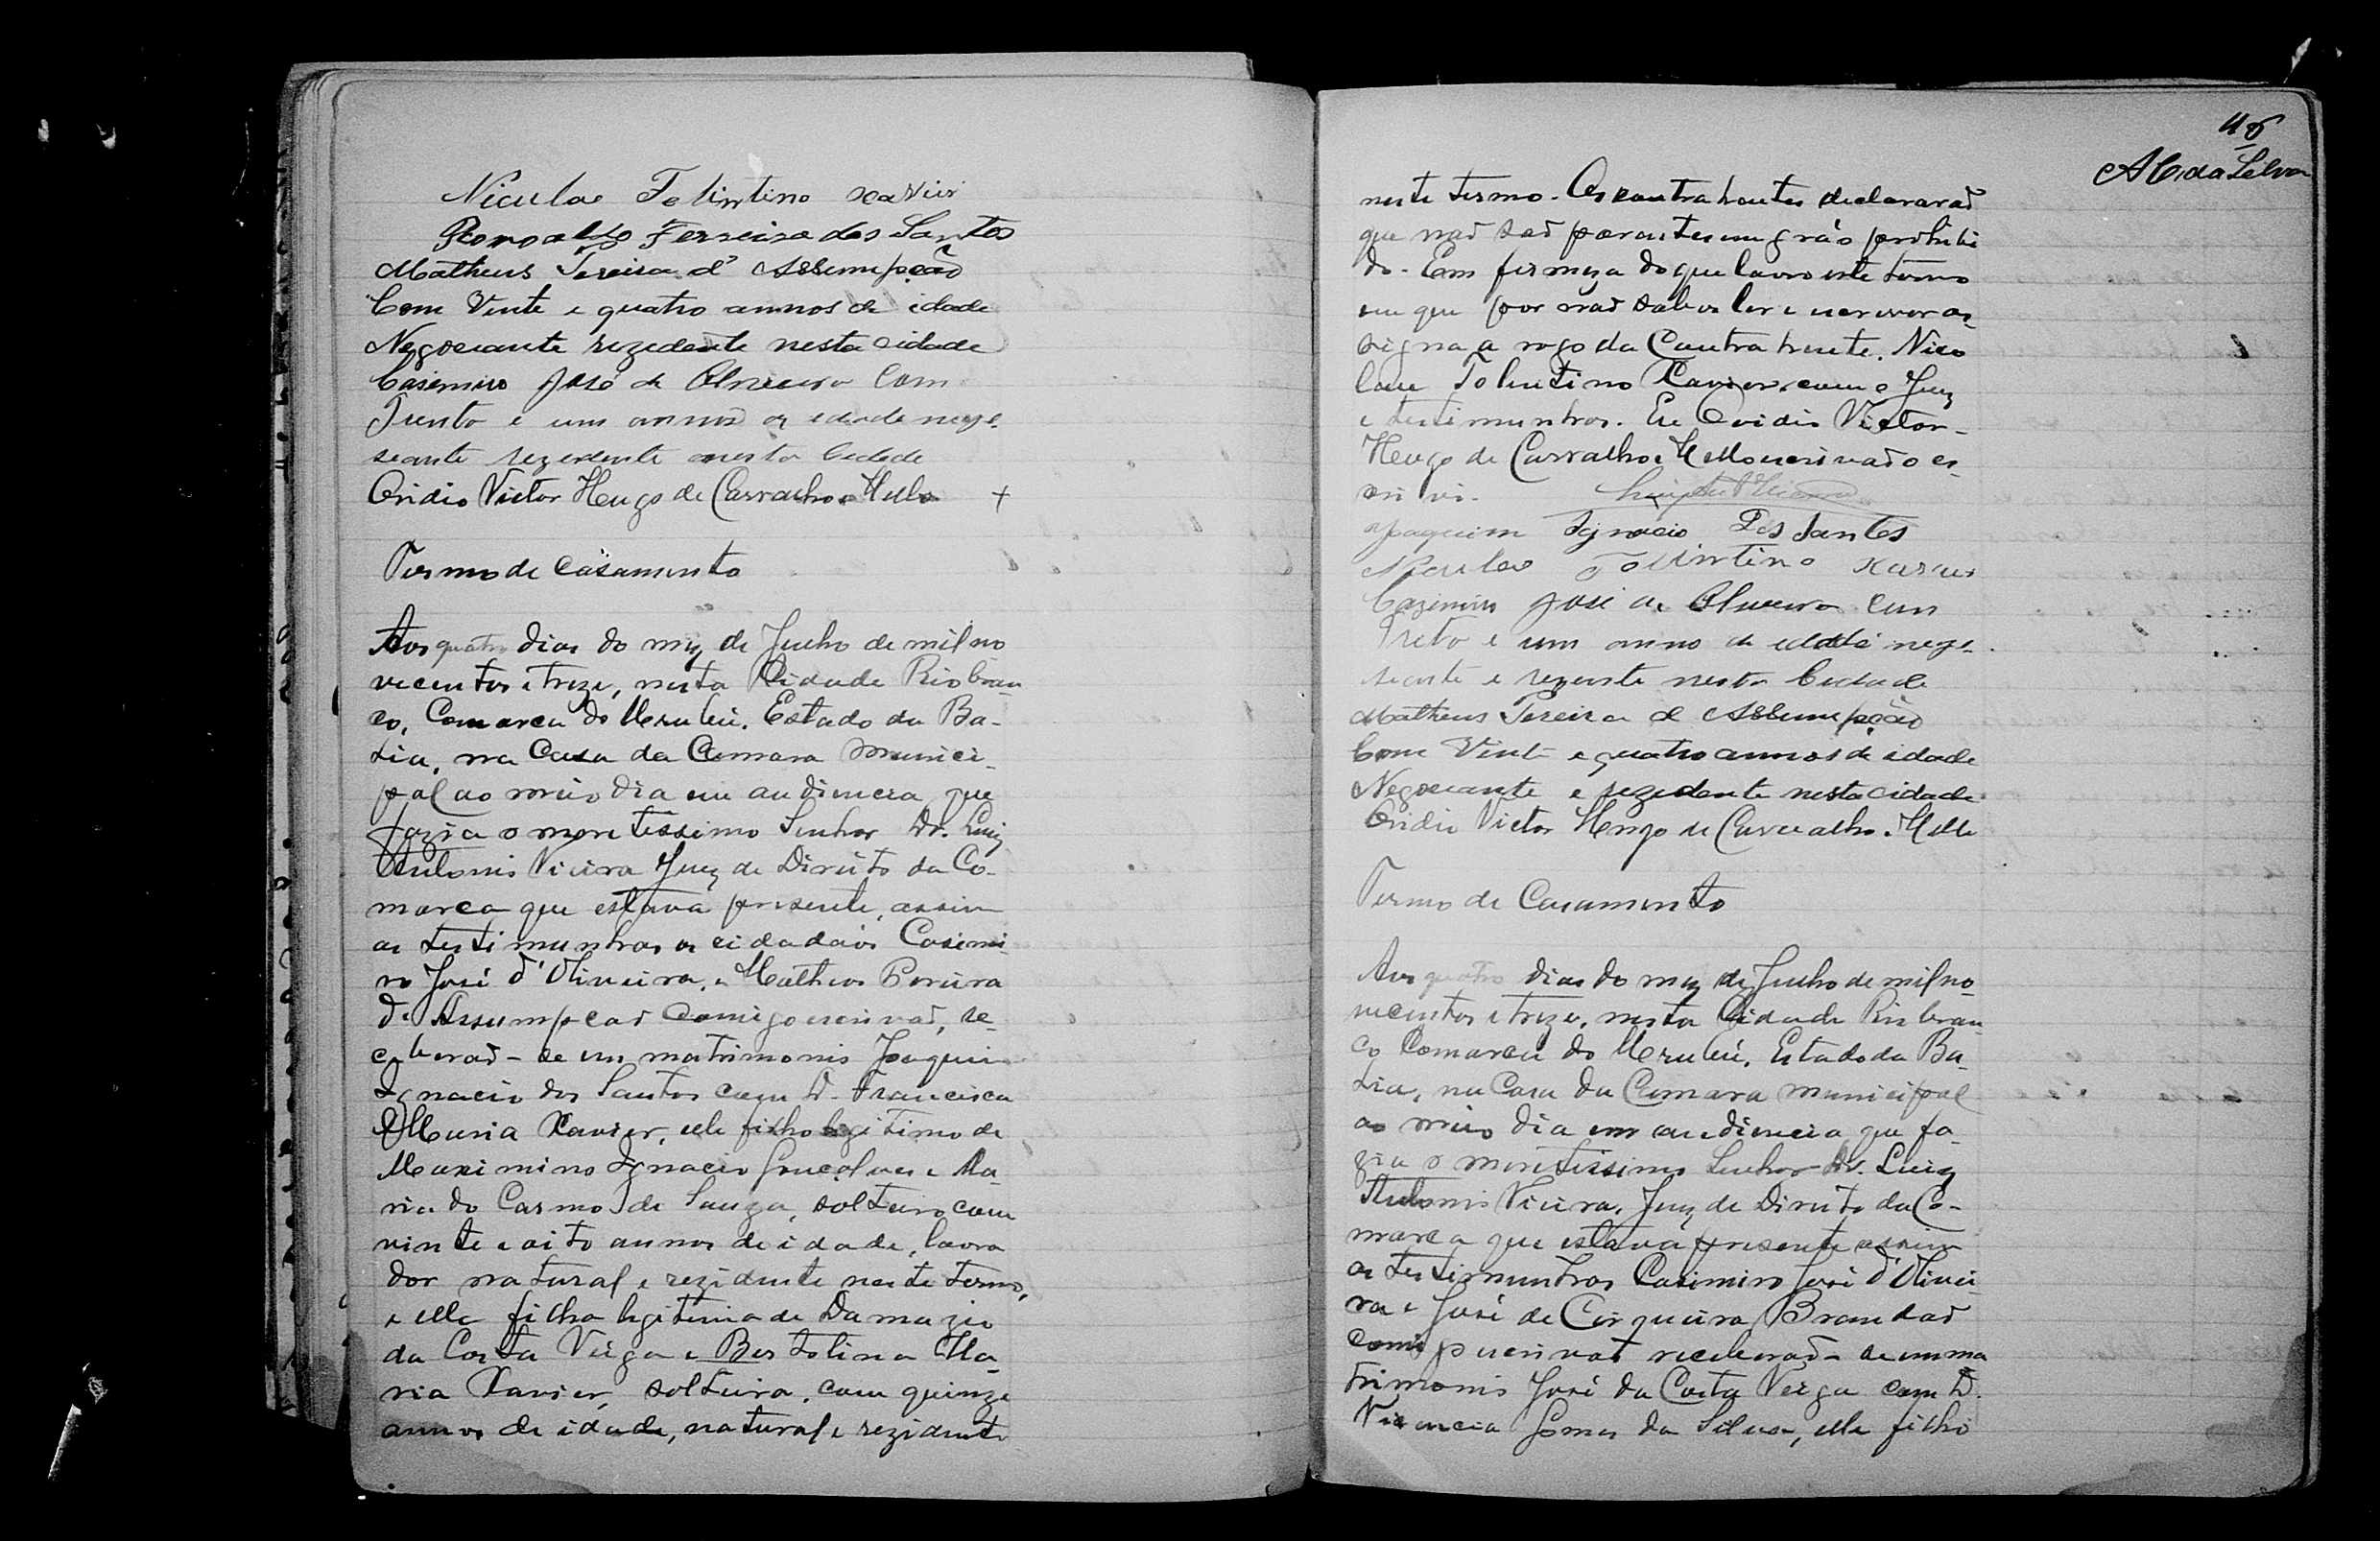 Niculao Tolintino Xavier
Romoaldo Ferreira dos Santos
Matheus Pereira d' Assumpção
Com Vinte e quatro annos de idade
Negociante rezedente nesta cidade
Casimiro José de Oliveira Com
Trinta e um annos de edade nego-
seante rezedente nesta Cidade
Ovidio Victor Hugo de Carvalho e Mello
Termo de Casamento
Aos quatro dias do mez de Junho de mil no
vecentos e treze, nesta Cidade Rio Bran-
co, Comarca do Urubú, Estado da Ba-
hia, na Casa da Camara Munici-
pal ao meio dia em audiencia que
fazia o meretissimo Senhor Dr. Luiz
Antonio Vieira Juiz de Direito da Co-
marca que estava presente, assim
as testimunhas os cidadãos Casimi
ro José d'Oliveira, e Matheus Pereira
d'Assumpcaõ comigo escrivaõ, re-
ceberaõ-se em matrimonio Joaquim
Ignacio dos Santos com D. Francisca
Maria Xavier, elle filho legitimo de
Maximino Ignacio Gonçalves e Ma-
ria do Carmo de Souza, solteiro com
vinte e oito annos de idade, lavra
dor natural e rezidente neste termo,
e ella filha legitima de Damazio
da Costa Veiga e Bertolina Ma-
ria Xavier, solteira, com quinze
annos de idade, natural e rezidente
46
A C da Silva
neste termo. Os contrahentes declararaõ
que naõ saõ parentes em gráo prohibi
do. Em firmeza do que lavro este termo
em que por naõ saber ler e escrever as-
signa a rogo da Contrahente, Nico
lau Tolentino Xavier com o Juiz
e testimunhas. Eu Ovidio Victor
Hugo de Carvalho e Mello escrivaõ es-
crivi.
Joaquim Ignacio Dos Santos
Niculao Tolintino Xavier
Casimiro José de Oliveira Com
Treta e um anno de edade nego-
seante e rezente nesta Cidade
Matheus Pereira d' Assumpção
Com Vinte e quatro annos de idade
Negociante e rezedente nesta cidade
Ovidio Victor Hugo de Carvalho e Mello
Termo de Casamento
Aos quatro dias do mez de Junho de mil no-
vecentos e treze, nesta Cidade Rio Bran-
co Comarca do Urubú, Estado da Ba-
hia, na Casa da Camara Municipal
ao meio dia em audiencia que fa-
zia o meretissimo Senhor Dr. Luiz
Antonio Vieira, Juiz de Direito da Co-
marca que estava presente assim
as testimunhas Casimiro José d'Olivei-
ra e José de Cirqueira Brandaõ
comigo escrivaõ receberaõ-se em ma
trimonio José da Costa Veiga com D.
Vicencia Gomes da Silva, elle filho